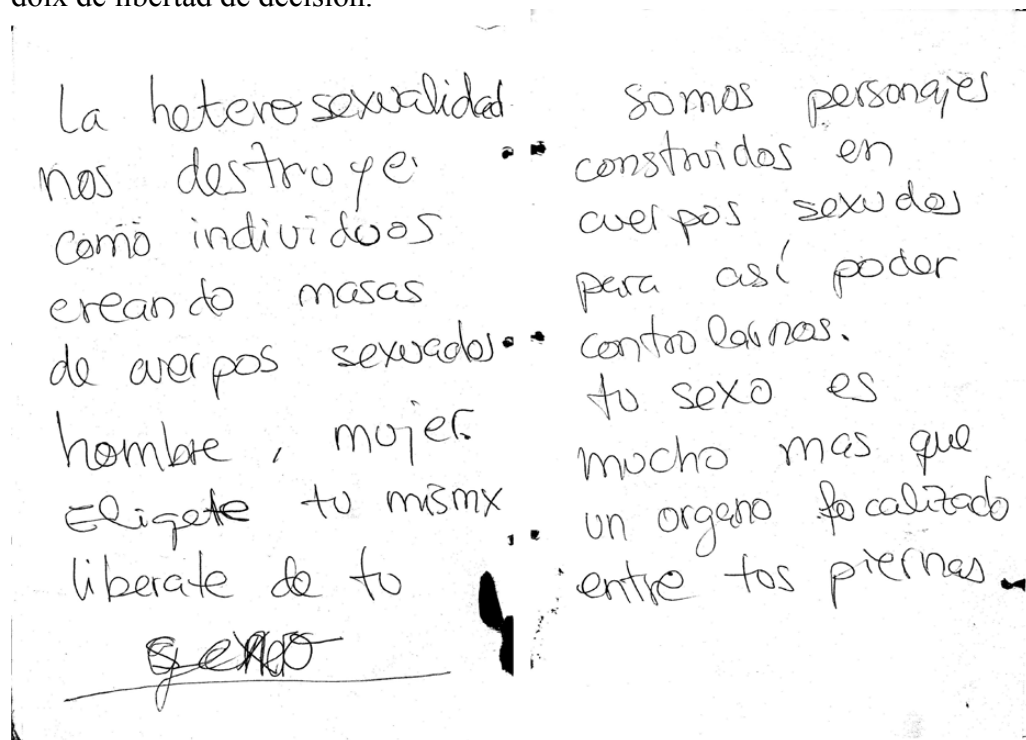 de libertad de decisión.
La heterosexualidad
nos destroye
como individuos
creando masas
de cuerpos sexuados
hombre, mujer.
Eligete tu mismx
liberate de tu
somos personajes
construidos en
cuerpos sexudos
para así poder
controlarnos.
tu sexo es
mucho mas que
un organo focalizado
entre tus piernas.